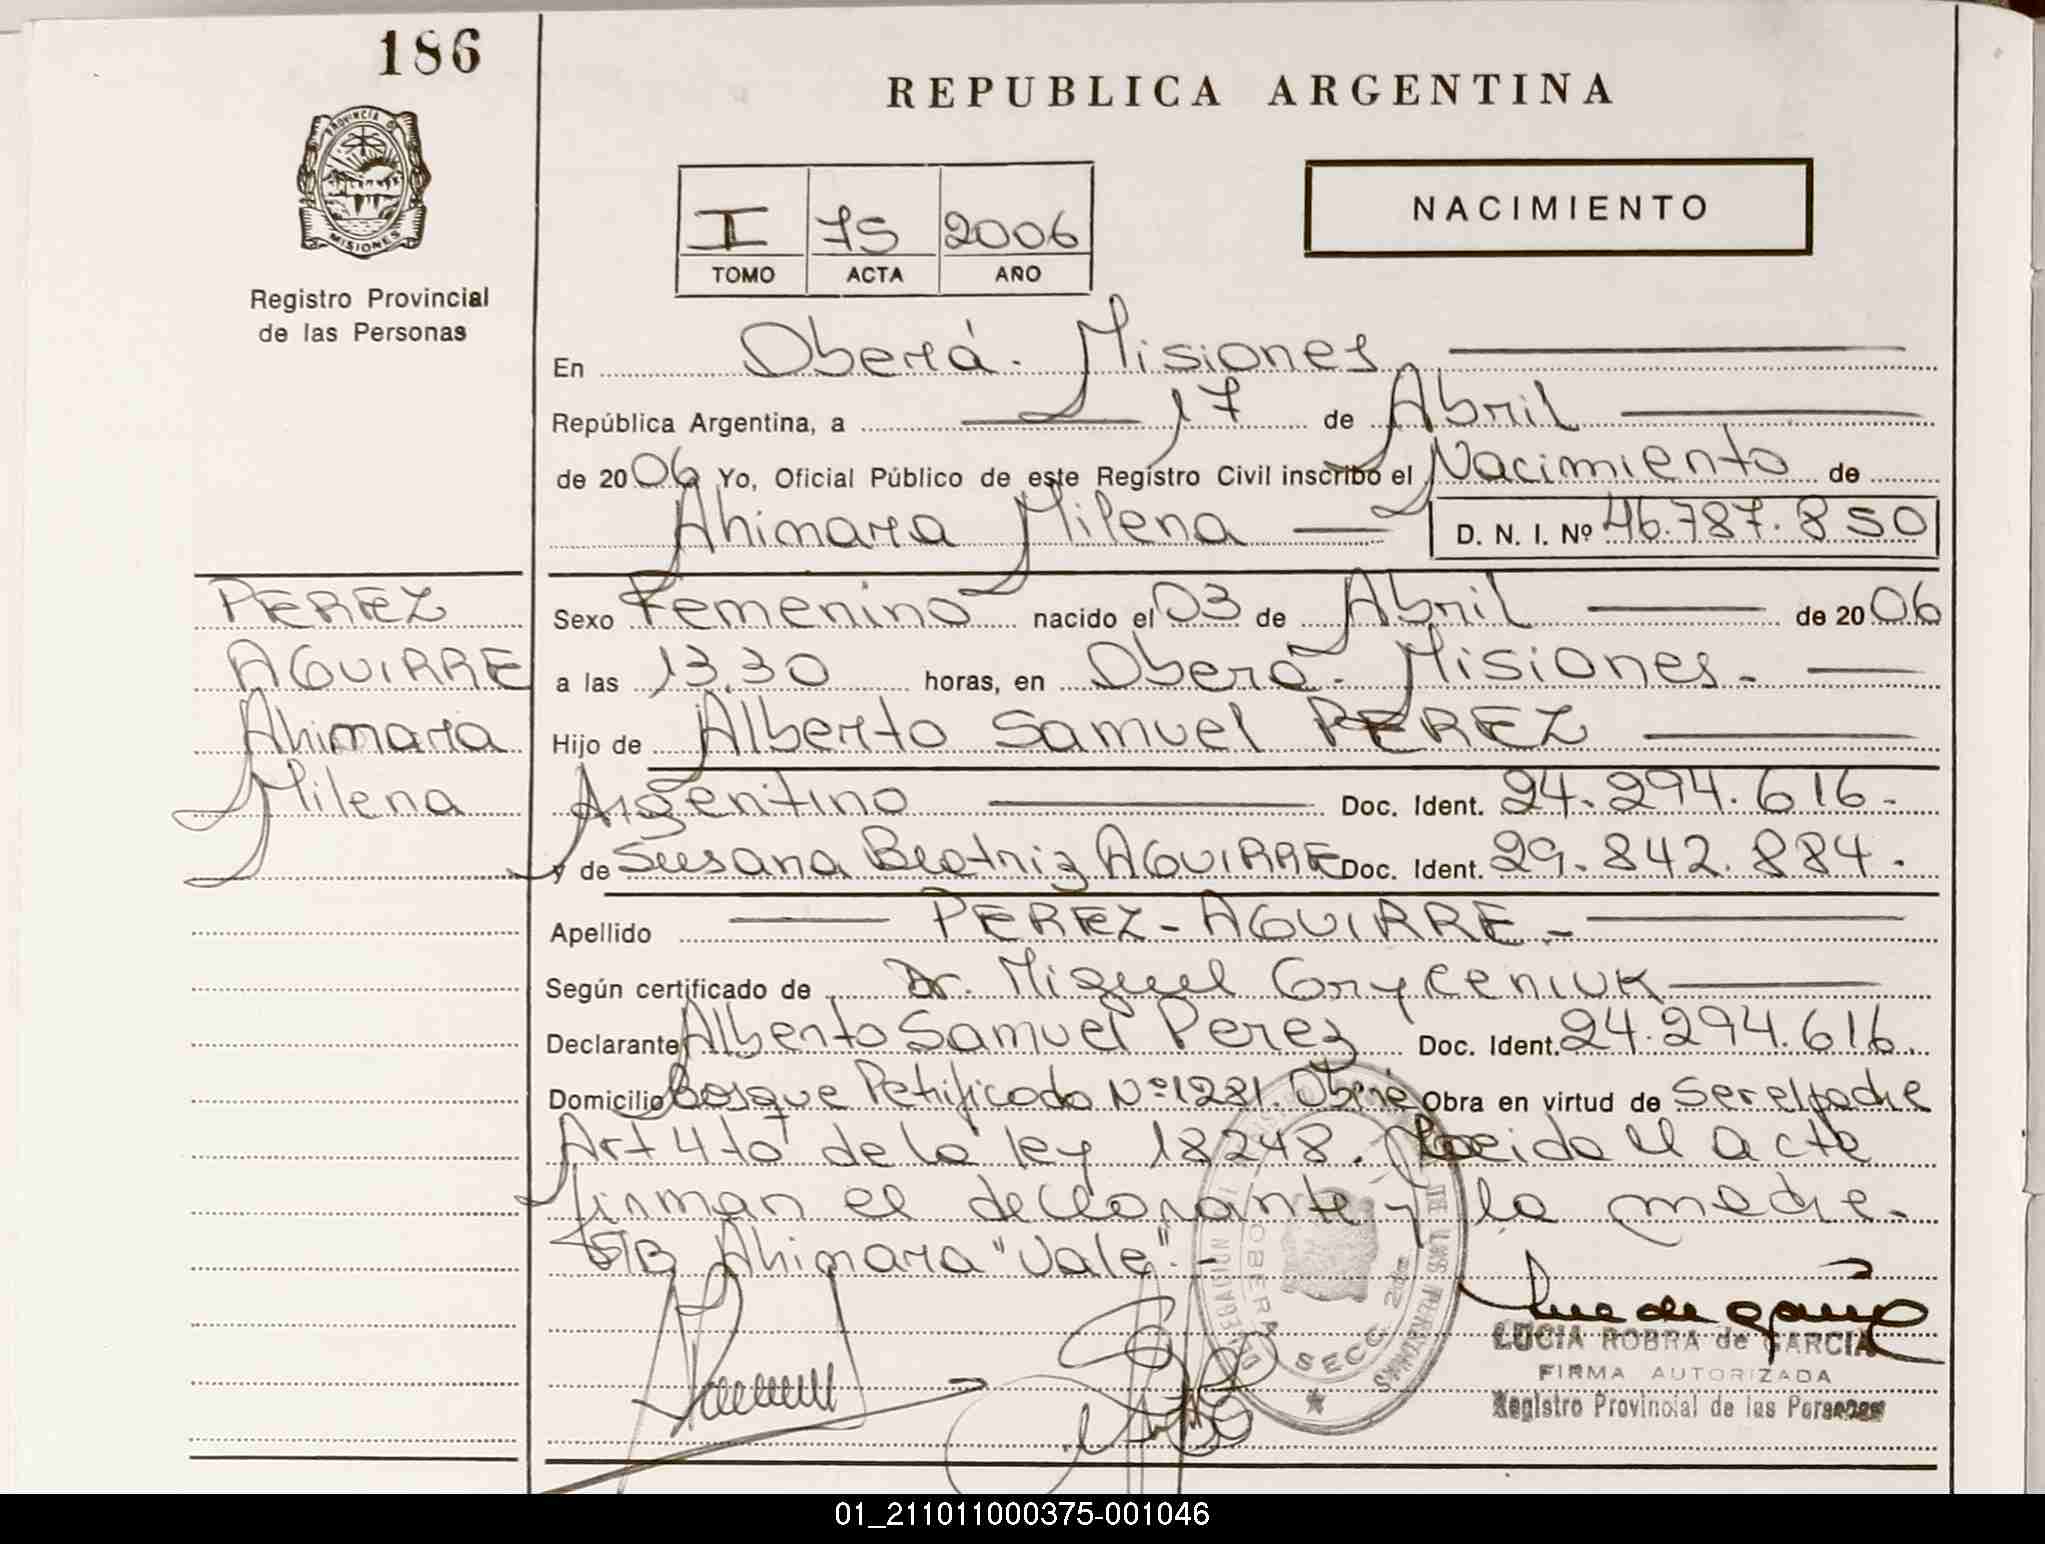 186
REPUBLICA ARGENTINA
PROVINCIA DE
MISIONES
Registro Provincial
de las Personas
I 75 2006
TOMO ACTA AÑO
NACIMIENTO
En Oberá. Misiones
República Argentina, a 17 de Abril
de 2006 Yo, Oficial Público de este Registro Civil inscribo el Nacimiento de
Ahimara Milena D. N. I. Nº 46.787.850
PEREZ
AGUIRRE
Ahimara
Milena
Sexo Femenino nacido el 03 de Abril de 2006
a las 13.30 horas, en Oberá. Misiones.
Hijo de Alberto Samuel PEREZ
Argentino Doc. Ident. 24.294.616.
y de Susana Beatriz AGUIRRE Doc. Ident. 29.842.884.
Apellido PEREZ - AGUIRRE.-
Según certificado de Dr. Miguel Gryceniuk
Declarante Alberto Samuel Perez Doc. Ident. 24.294.616.
Domicilio Bosque Petrificado Nº 1281. Oberá Obra en virtud de ser el padre
Art 4to de la ley 18248. Leida el acta
firman el declarante y la madre.
S/B Ahimara "Vale".-
DELEGACION
OBERA
SECC. 2da
DE LAS PERSONAS
LUCIA ROBRA de GARCIA
FIRMA AUTORIZADA
Registro Provincial de las Personas
01_211011000375-001046